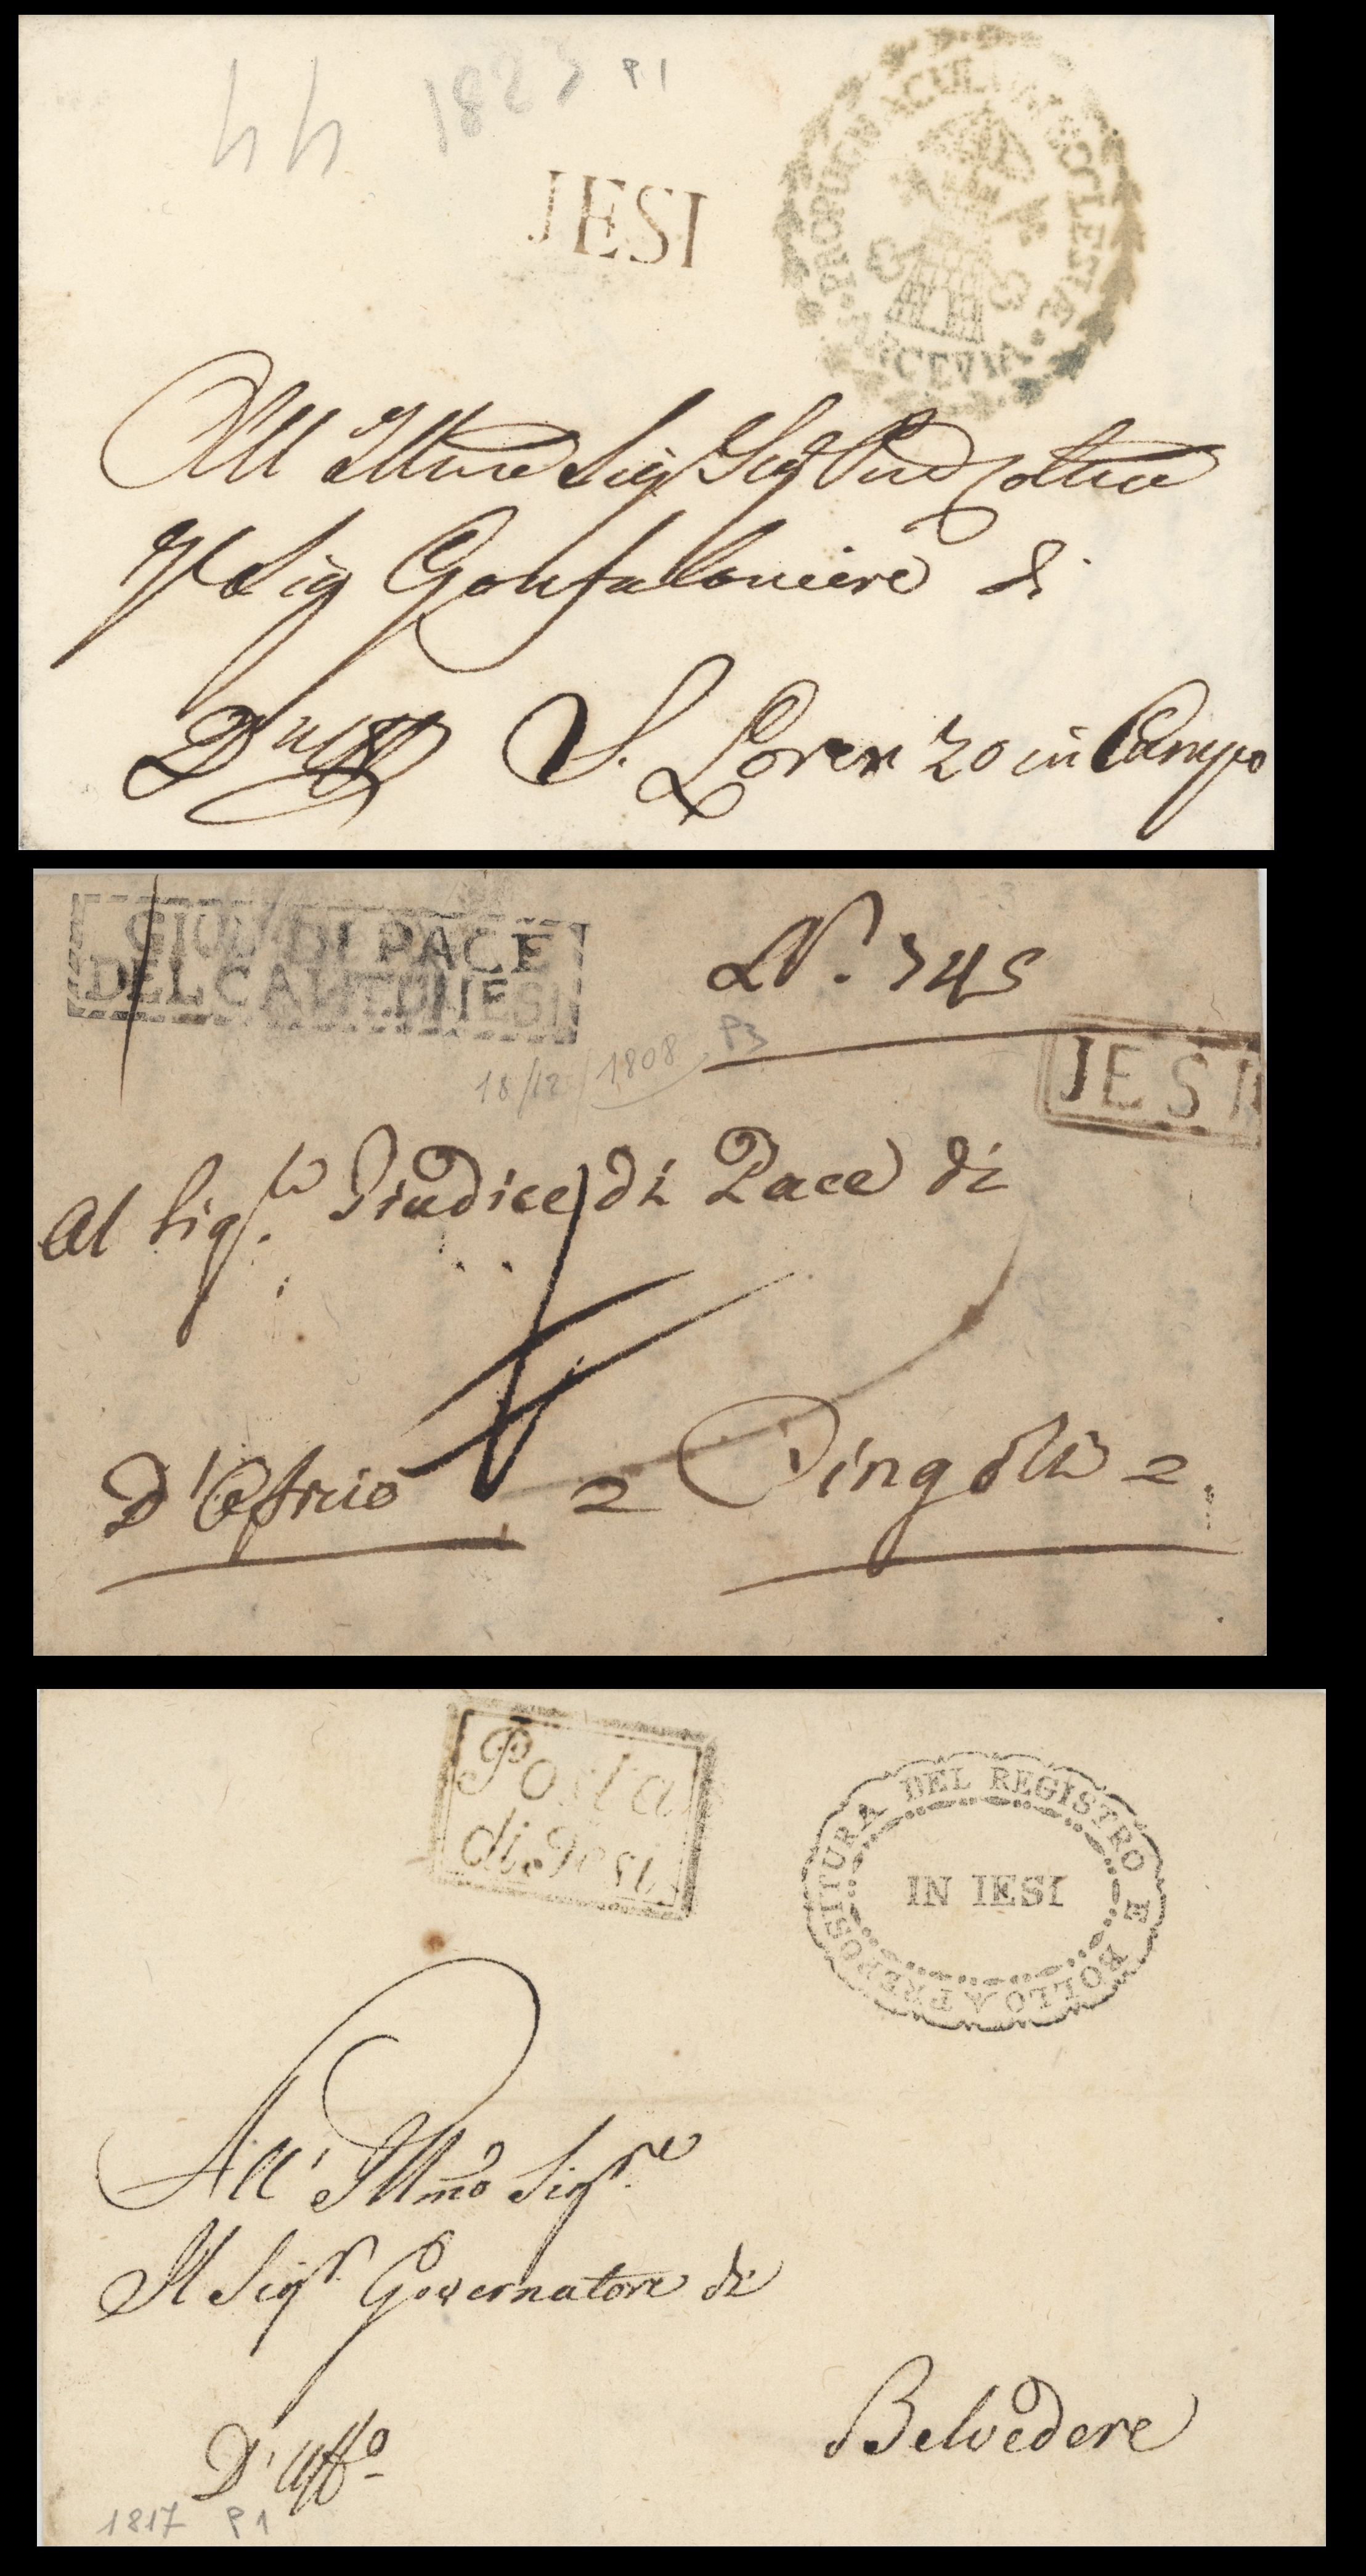 44 1823 P1
JESI
PROPUGNACULUM ECCLESIAE
ARCEVIA
All Illmo Sig Sig Pne Colmo
Il Sig Gonfaloniere di
S. Lorenzo in Campo
GIUD DI PACE
DEL CANTON JESI
N. 345
P3
18/12/1808
JESI
Al Sig.re Giudice di Pace di
D'Officio = Cingoli =
Posta
di Jesi
PREPOSITURA DEL REGISTRO E BOLLO A
IN IESI
All' Illmo Sigre
Il Sigr Governatore di
Belvedere
D'Uffo
1817 P1